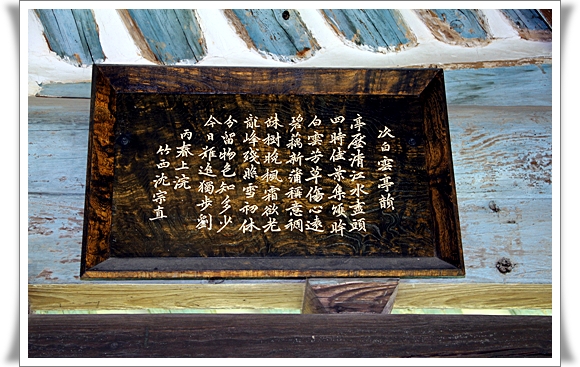 次白雲亭韻
亭壓清江水盡頭
四時佳景集眸
白雲芳草傷心遠
碧藕新蒲稱意稠
樹晚楓霜欲老
龍峰殘照雪初休
分留物色知多少
今日難追獨步劉
丙春上浣
竹西沈宗直